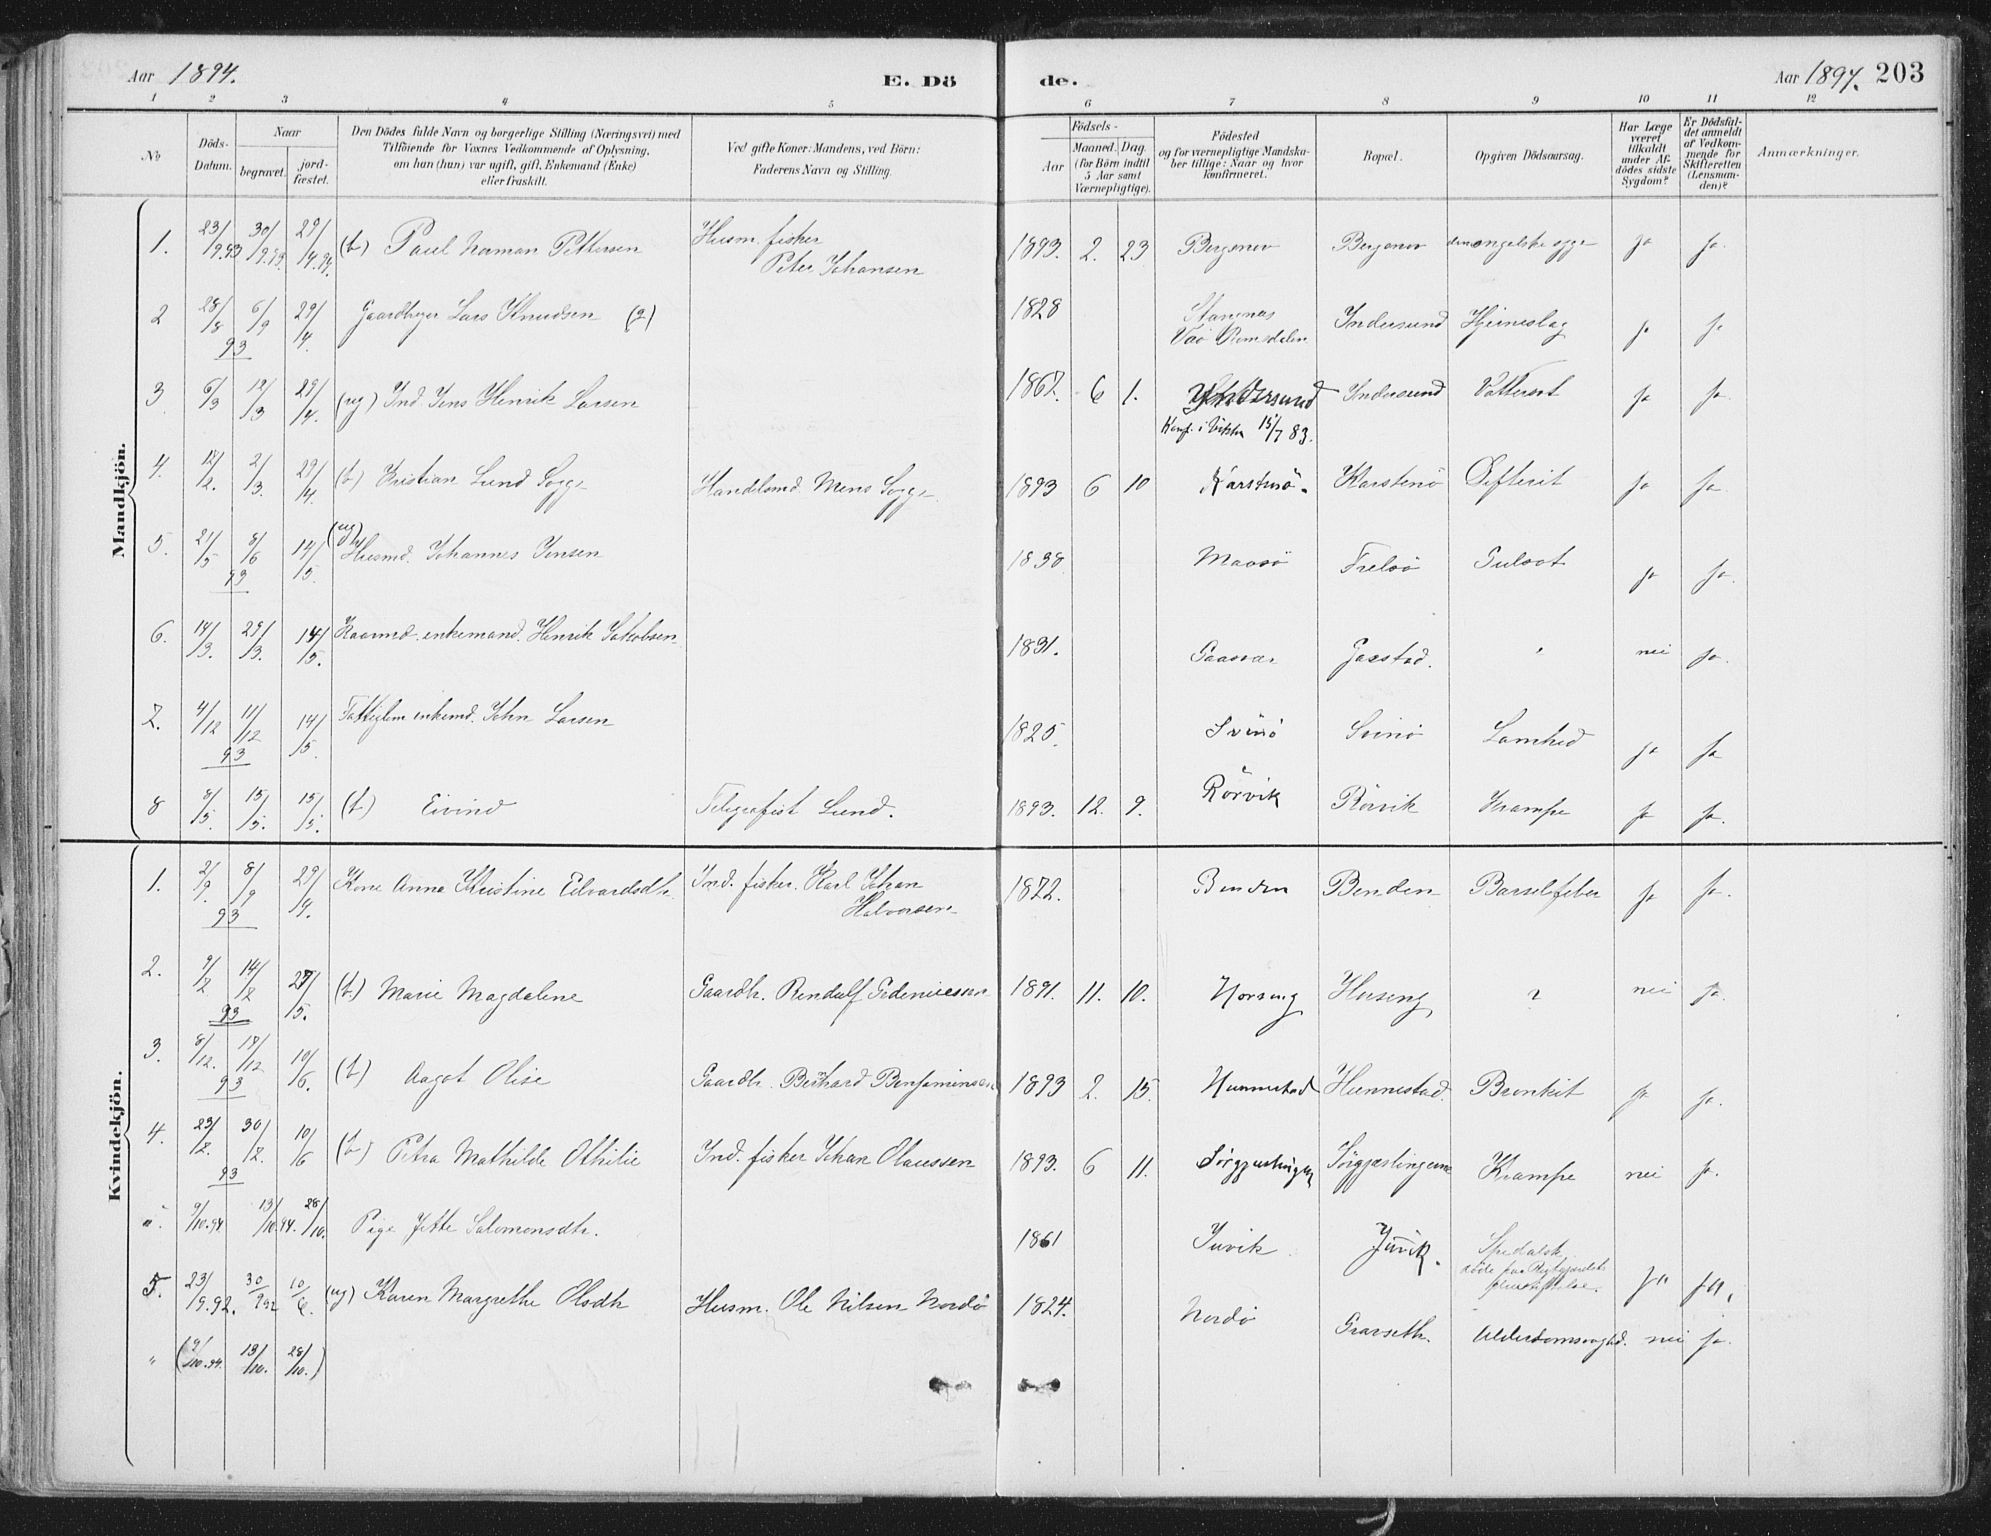 Aar 1894. E. Dö de. Aar 1894. 203
1 2 3 4 5 6 7 8 9 10 11 12
No
Döds-Datum.
Naar
begravet.
jord-fæstet.
Den Dödes fulde Navn og borgerlige Stilling (Næringsvei) med
Tilföiende for Voxnes Vedkommende af Oplysning,
om han (hun) var ugift, gift, Enkemand (Enke)
eller fraskilt.
Ved gifte Koner: Mandens, ved Börn:
Faderens Navn og Stilling.
Födsels-
Aar
Maaned. Dag.
(for Börn indtil
5 Aar samt
Værnepligtige).
Födested
og for værnepligtige Mandska-
ber tillige: Naar og hvor
konfirmeret.
Bopæl.
Opgiven Dödsaarsag.
Har Læge
været
tilkaldt
under Af-
dödes sidste
Sygdom?
Er Dödsfal-
det anmeldt
af Vedkom-
mende for
Skifteretten
(Lensman-
den)?
Anmærkninger.
Mandkjön.
1. 23/9.93 30/9.93. 29/4.94. (b) Paul Norman Pettersen Husm. fisker
Peter Johansen 1893. 2. 23 Bergsnov Bergsnov den engelske syge ja ja.
2 28/8 6/9 93 29/4. Gaardbruger Lars Knudsen (g) 1828
Romsdalen Indersund Hjerneslag ja ja
3 6/3 12/3 29/4. (ug) Ind. Jens Henrik Larsen 1867. 6 1. Indersund Indersund Vattersot ja ja.
Konf. i Vikten 15/7 83.
4. 12/2. 2/3. 29/4 (b) Kristian Lund Sogge Handelsmd. Mons Sogge 1893 6 10 Karstenö. Karstenö Difterit ja ja.
5. 21/5 8/6 93 14/5. (ug) Husmd. Johannes Jensen 1838 Maasö Frelsö ja ja.
6. 14/3. 29/3. 14/5. Kaarmd. enkemand. Henrik Jakobsen 1831. Gaasvær Garstad. nei ja.
7. 4/12 11/12 93 14/5. enkemd. John Larsen 1825. Svinö Svinö Lamhed ja ja
8 8/5. 15/5. 15/5. (b) Eivind Telegrafist Lund. 1893. 12. 9. Rörvik Rörvik Krampe ja ja.
Kvindekjön.
1. 2/9. 8/9 93 29/4. Kone Anna Kristine Edvardsdtr. Ind. fisker. Karl Johan
Halvorsen 1872. Benden Benden Barselfeber ja ja.
2. 9/2 14/2 93 27/5. (b) Marie Magdalene Gaardb. 1891. 11. 10. Horseng Horseng ? nei ja.
3. 8/12. 17/12 93 10/6. (b) Aagot Olise Gaardb. Bernhard Benjaminsen 1893 2. 15. Hunnestad Hunnestad. Bronkit ja ja.
4. 23/12. 30/12. 93 10/6 (b) Petra Mathilde Othilie Ind. fisker Johan Olaussen 1893. 6 11. Sörgjæslingerne Krampe nei ja.
9/10.94 13/10.94. 28/10. Pige Jette Salomonsdtr. 1861 Juvik Juvik. Spedalsk
döde paa Reitgjerdets
pleiestiftelse. ja ja.
5. 23/9.92. 30/9 92 10/6. (ug) Karen Margrethe Olsdtr Husm. Ole Nilsen Nordö 1824. Nordö Alderdomssvaghed. nei ja.
" (9/10.94. 13/10. 28/10.)